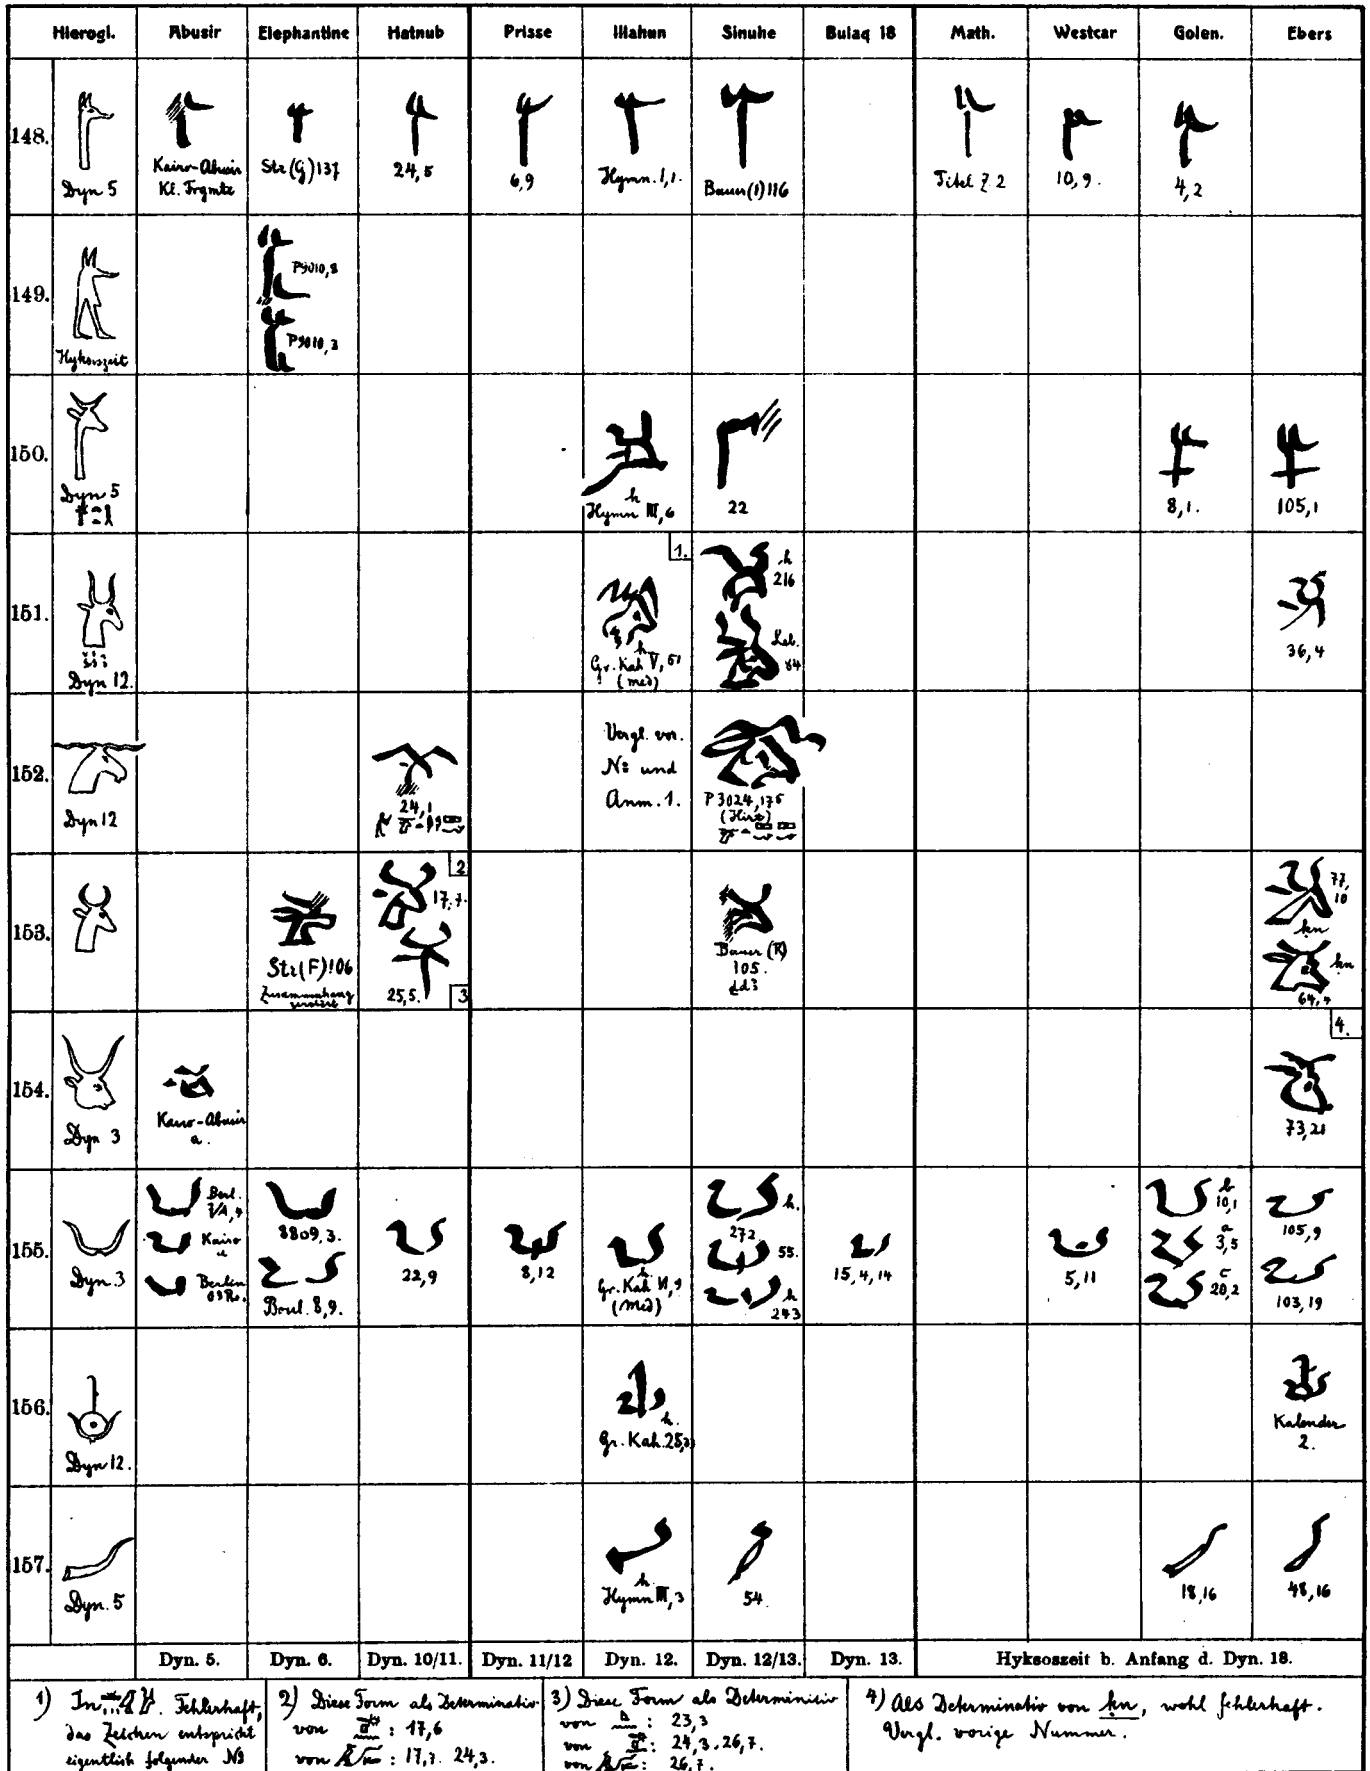 Hierogl. Abusir Elephantine Hatnub Prisse Illahun Sinuhe Bulaq 18 Math. Westcar Golen. Ebers
148.
Dyn 5
Kairo-Abusir
Kl. Frgmte
Str (G) 137
24,5
6,9
Hymn. I,1.
Bauer (1) 116
Titel Z. 2
10,9.
4,2
149.
Hyksoszeit
P9010,8
P9010,3
150.
Dyn 5
h
Hymn III,6
22
8,1.
105,1
151.
Dyn 12.
1.
h
Gr. Kah V, 51
(med)
h
216
Leb.
84
36,4
152.
Dyn 12
24,1
Vergl. vor.
No und
Anm. 1.
P 3024,175
(Hirt)
153.
Str (F) 106
Zusammenhang
zerstört
2
17,7.
25,5.
3
Bauer (R)
105.
77,
10
ḳn
ḳn
64,4
154.
Dyn 3
Kairo-Abusir
a.
4.
73,21
155.
Dyn. 3
Berl.
Kairo
Berlin
8809,3.
Boul. 8,9.
22,9
8,12
h.
Gr. Kah VI,9
(med)
h.
272
55.
h
243
15,4,14
5,11
b
10,1
a
3,5
c
20,2
105,9
103,19
156.
Dyn 12.
h.
Gr. Kah.
Kalender
2.
157.
Dyn. 5
h.
Hymn III,3
54.
18,16
48,16
Dyn. 5. Dyn. 6. Dyn. 10/11. Dyn. 11/12 Dyn. 12. Dyn. 12/13. Dyn. 13. Hyksoszeit b. Anfang d. Dyn. 18.
1) In Fehlerhaft,
das Zeichen entspricht
eigentlich folgender No
2) Diese Form als Determinativ
von : 17,6
von : 17,7. 24,3.
3) Diese Form als Determinitiv
von : 23,3
von : 24,3. 26,7.
von : 26,7.
4) Als Determinativ von ḳn, wohl fehlerhaft.
Vergl. vorige Nummer.